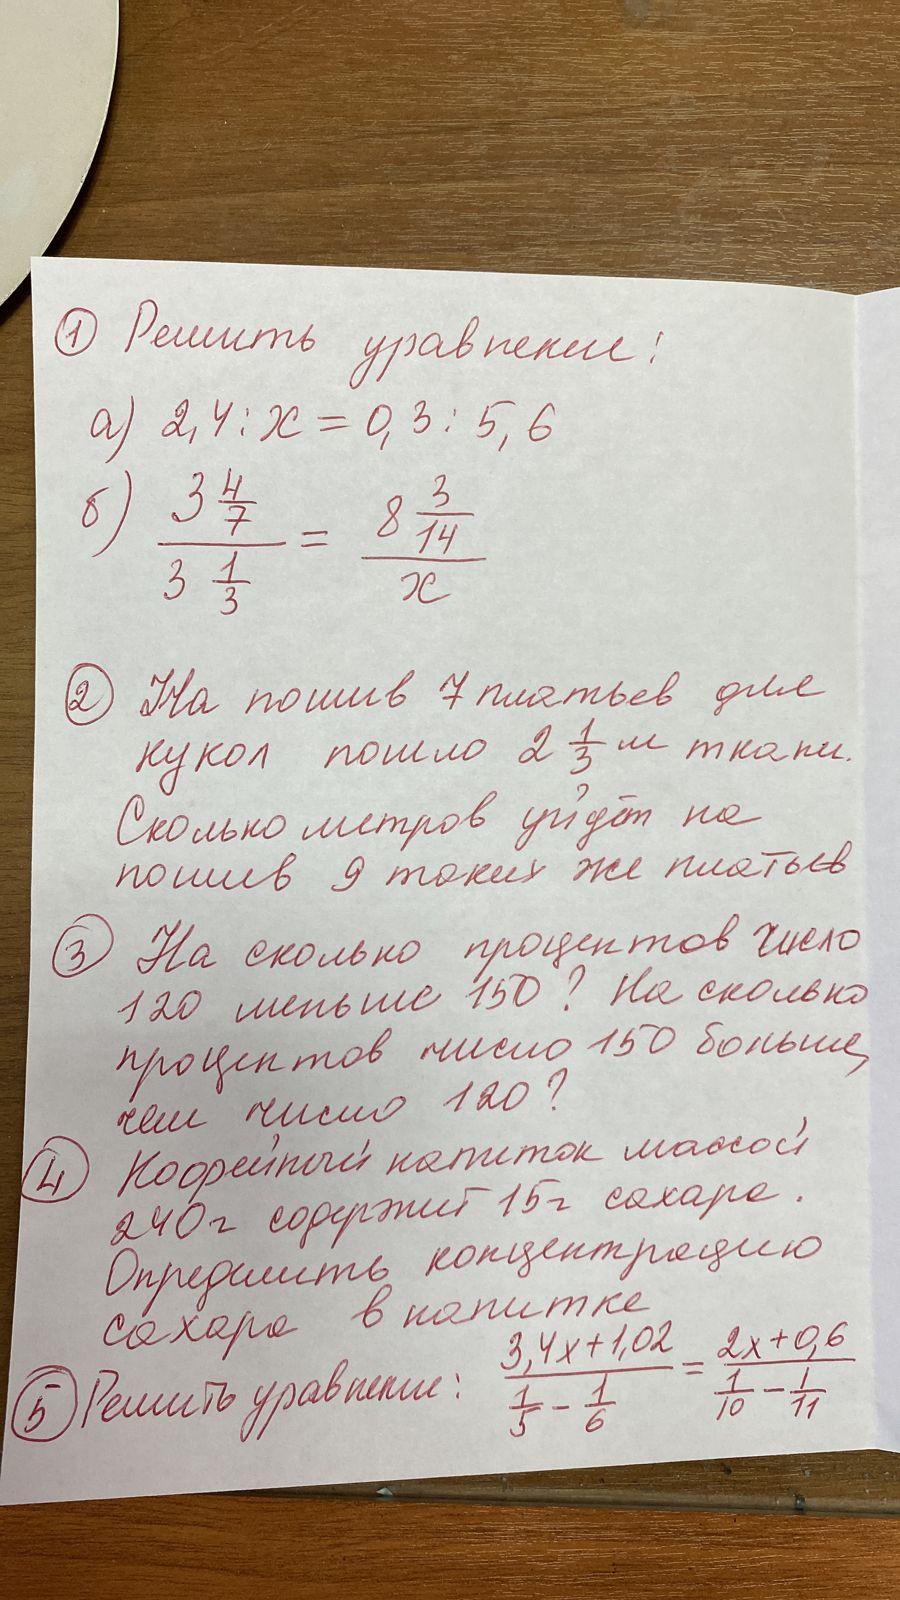 ① Решить уравнение:
а) 2,4 : x = 0,3 : 5,6
б) (3 4/7)/(3 1/3) = (8 3/14)/x
② На пошив 7 платьев для
кукол пошло 2 1/3 м ткани.
Сколько метров уйдёт на
пошив 9 таких же платьев
③ На сколько процентов число
120 меньше 150? На сколько
процентов число 150 больше,
чем число 120?
④ Кофейный напиток массой
240г содержит 15г сахара.
Определить концентрацию
сахара в напитке
⑤ Решить уравнение: (3,4x+1,02)/(1/5 − 1/6) = (2x+0,6)/(1/10 − 1/11)